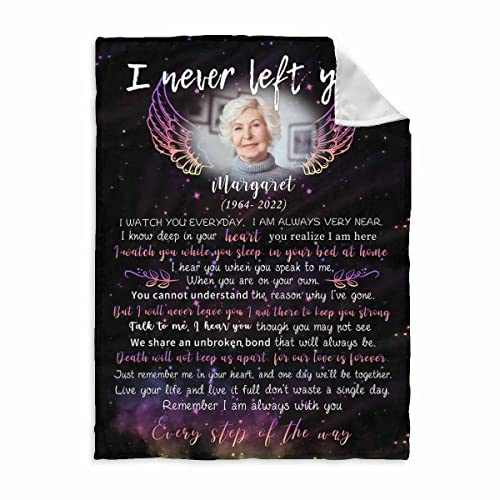 I never left y
Margaret
(1964- 2022)
I WATCH YOU EVERYDAY, I AM ALWAYS VERY NEAR.
I know deep in your heart you realize I am here
I watch you while you sleep, in your bed at home
I hear you when you speak to me,
When you are on your own.
You cannot understand the reason why I've gone.
But I will never leave you I am there to keep you strong
Talk to me, I hear you though you may not see
We share an unbroken bond that will always be.
Death will not keep us apart, for our love is forever.
Just remember me in your heart, and one day we'll be together.
Live your life and live it full don't waste a single day.
Remember I am always with you
Every step of the way